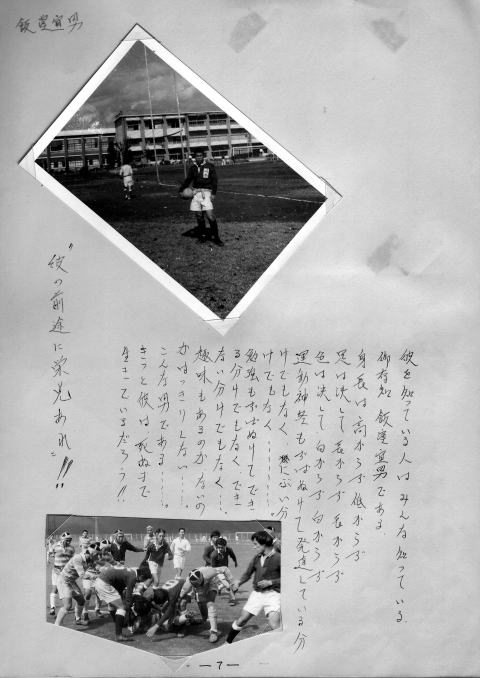 飯豊宣男
彼を知っている人はみんな知っている.
御存知 飯豊宣男である.
身長は 高からず 低からず
足は決して 長からず 長からず
色は決して 白からず 白からず
運動神経もずばぬけて発達している分
けでもなく、にぶい分
けでもなく……。
勉強もずばぬけてでき
る分けでもなく、でき
ない分けでもなく…。
趣味もあるのか ないの
かはっきりしない…。
こんな男である…。
きっと彼は 死ぬまで
生きているだろう!!
"彼の前途に栄光あれ"!!!
—7—